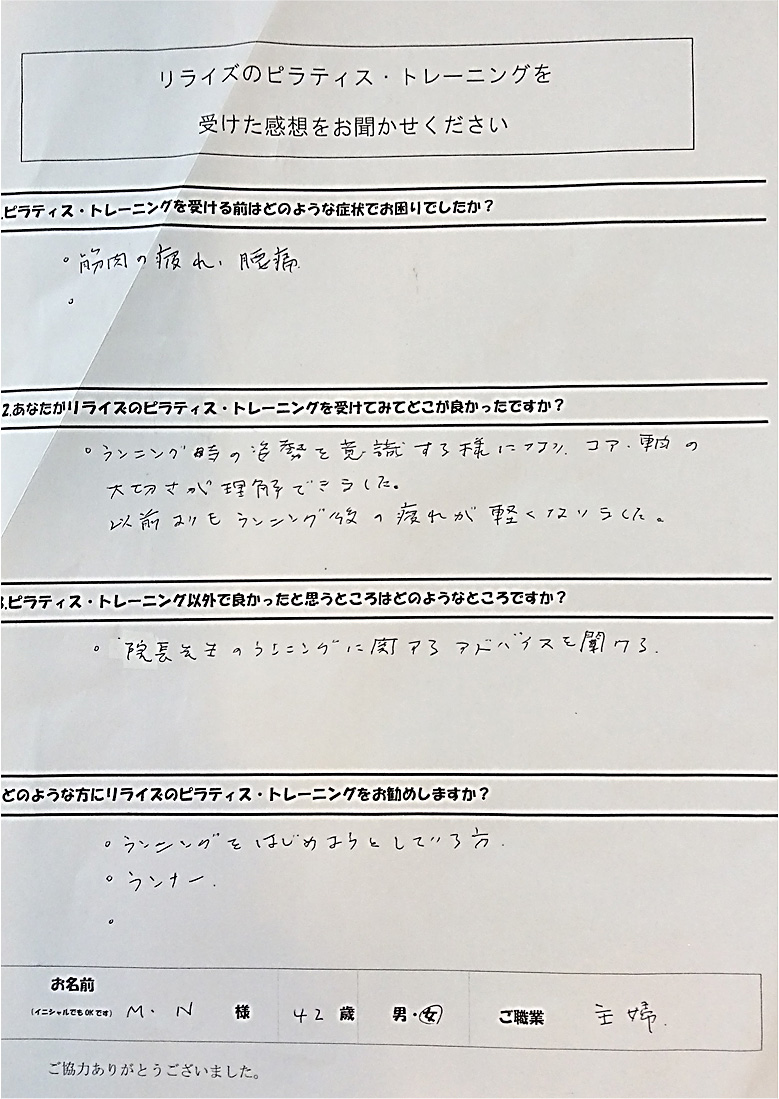 リライズのピラティス・トレーニングを
受けた感想をお聞かせください
.ピラティス・トレーニングを受ける前はどのような症状でお困りでしたか？
。筋肉の疲れ、腰痛
。
2.あなたがリライズのピラティス・トレーニングを受けてみてどこが良かったですか？
。ランニング時の姿勢を意識する様になり、コア・軍肉の
大切さが理解できました。
以前よりもランニング後の疲れが軽くなりました。
3.ピラティス・トレーニング以外で良かったと思うところはどのようなところですか？
。院長先生のランニングに関するアドバイスを聞ける.
どのような方にリライズのピラティス・トレーニングをお勧めしますか？
。ランニングをはじめようとしている方.
。ランナー.
。
お名前
(イニシャルでもOKです) M. N 様 42歳 男・女 ご職業 主婦.
ご協力ありがとうございました。